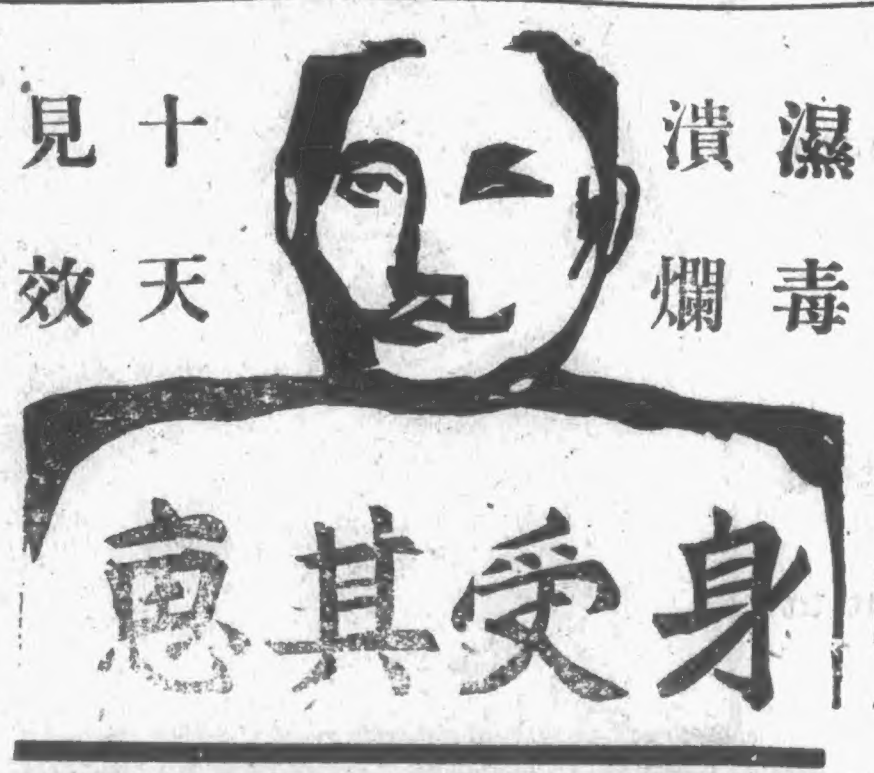 濕毒
潰爛
十天
見效
身受其惠